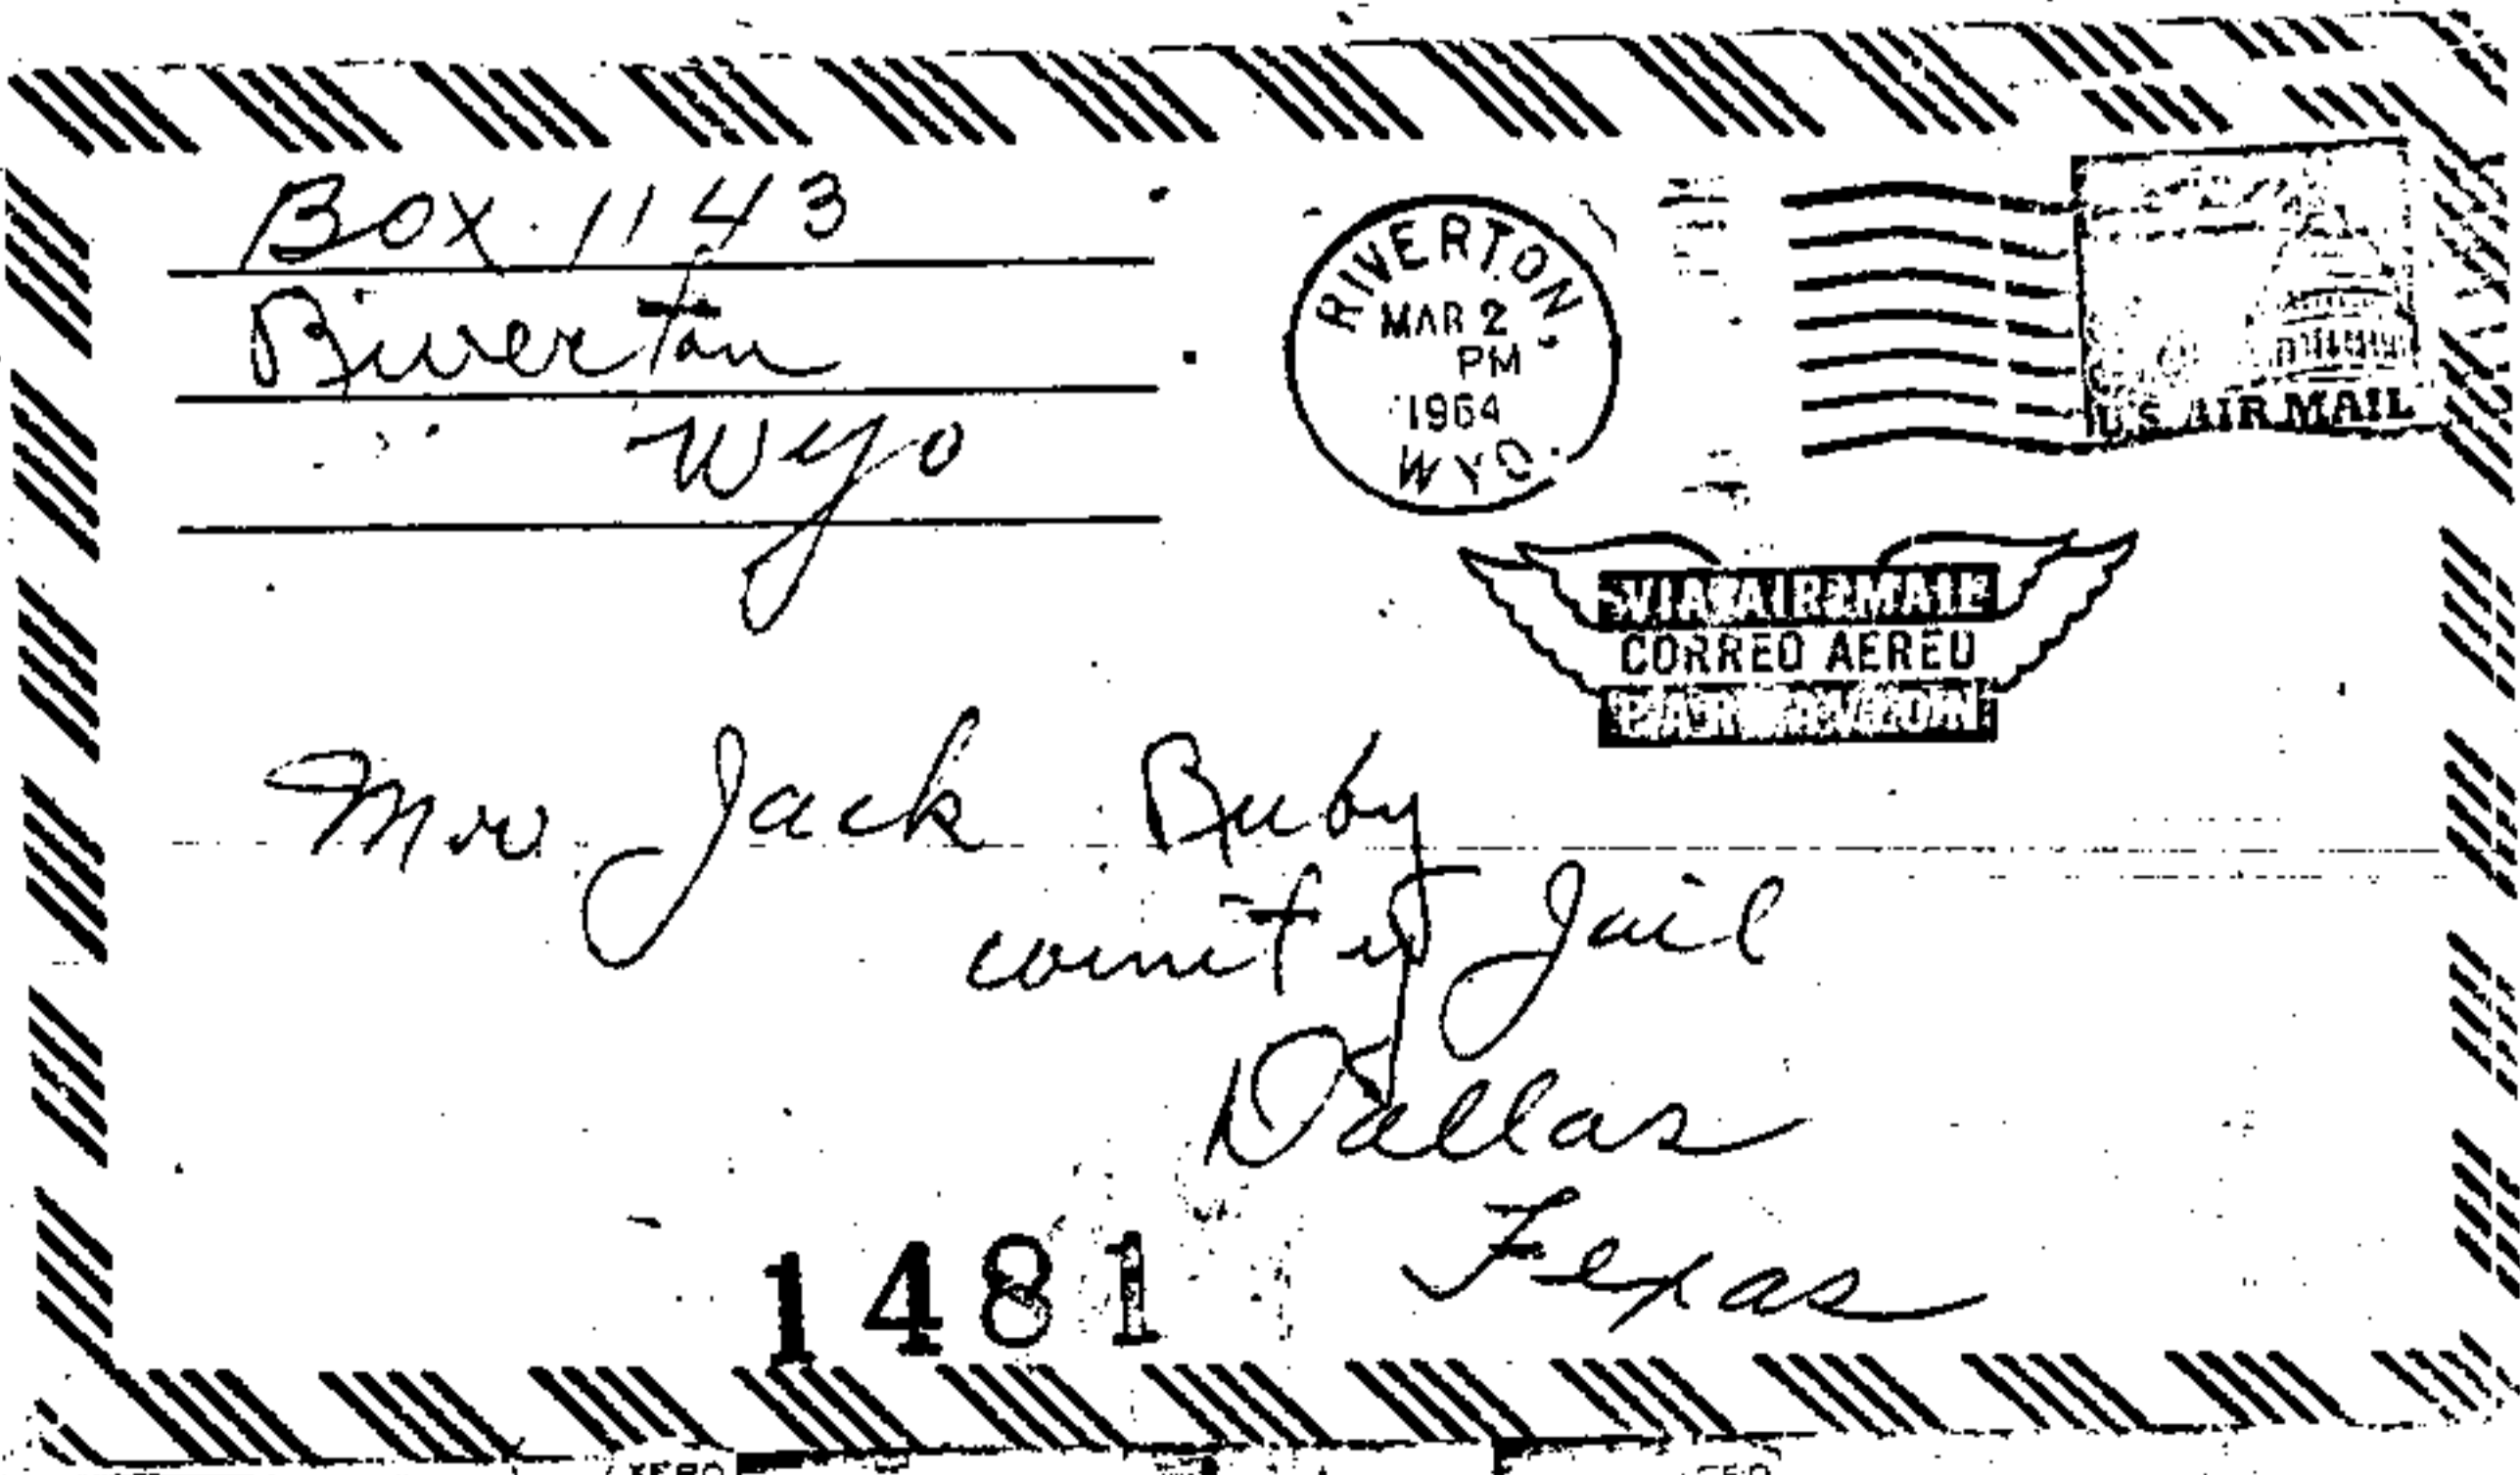 Box 1143
Riverton
Wyo
RIVERTON,
MAR 2
PM
1964
WYO.
U.S. AIR MAIL
VIA AIR MAIL
CORREO AEREO
PAR AVION
Mr Jack Ruby
county Jail
Dallas
Texas
1481